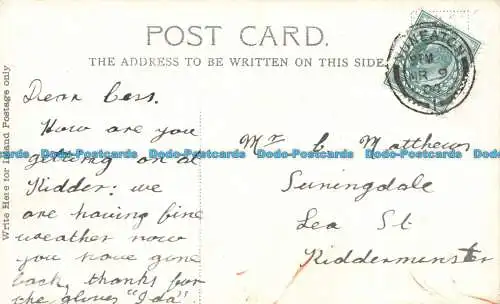 POST CARD.
THE ADDRESS TO BE WRITTEN ON THIS SIDE
NUNEATON
MR 9
Write Here for Inland Postage only
Dear Cess.
How are you
getting on at
Kidder: we
are having fine
weather now
you have gone
back, thanks for
the gloves "Ida"
Mr C Matthews
Suningdale
Lea St
Kidderminster
Dado-Postcards Dado-Postcards Dado-Postcards Dado-Postcards